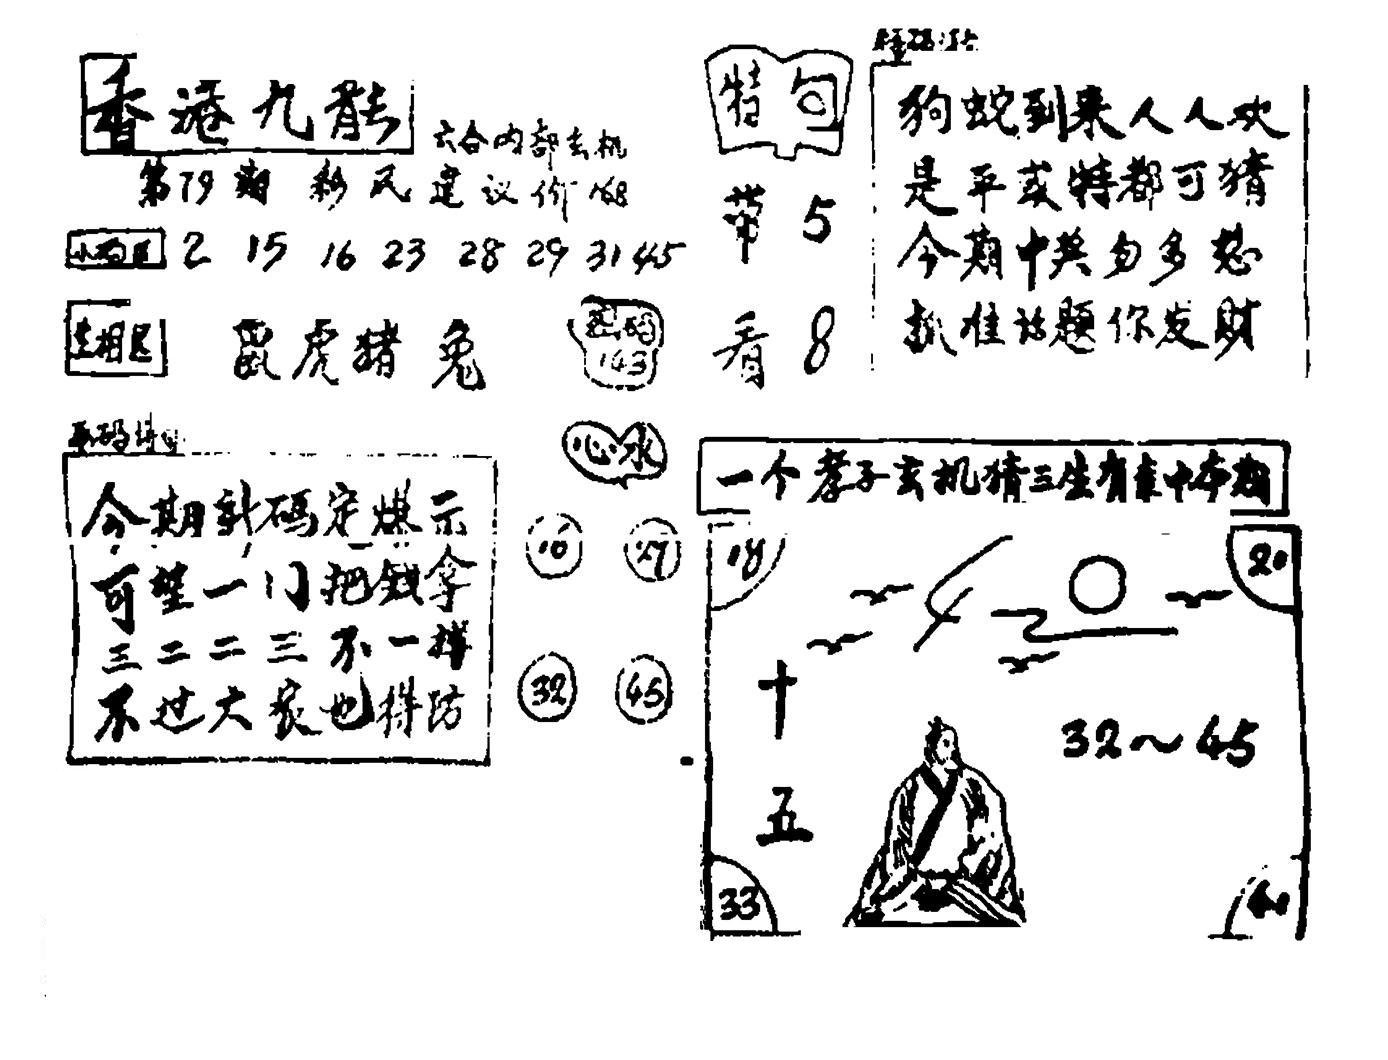 香港九龍
六合内部玄机
第79期 彩民建议价168
2 15 16 23 28 29 31 45
生相区 鼠虎猪兔
143
特句
带5
看8
狗蛇到来人人欢
是平或特都可猜
今期中奖勿多愁
抓准话题你发财
今期計码定爆示
可望一门把钱拿
三二二三不一样
不过大家也得防
心水
16 27
32 45
一个孝子玄机猜三生肖来中本期
18 20
十五
32～45
33